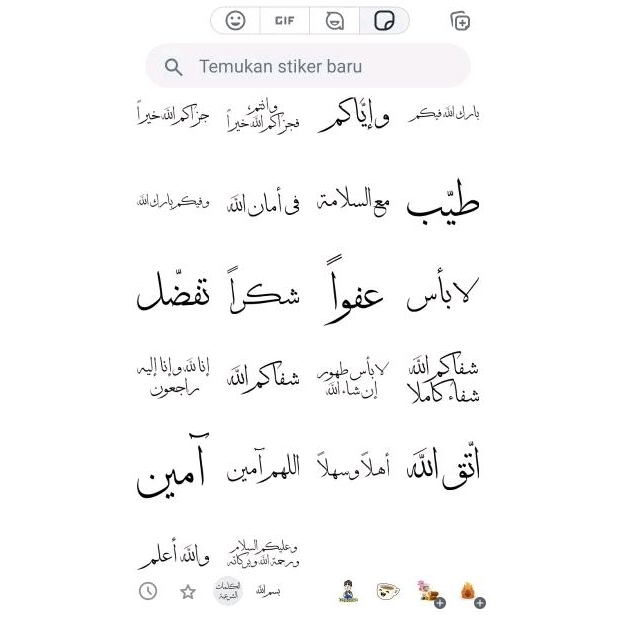 GIF
Temukan stiker baru
بارك الله فيكم
وإيّاكم
وانتم،
فجزاكم الله خيراً
جزاكم الله خيراً
طيّب
مع السلامة
في أمان الله
وفيكم بارك الله
لا بأس
عفواً
شكراً
تفضّل
شفاكم الله
شفاء كاملا
لا بأس طهور
إن شاء الله
شفاكم الله
إنا لله وإنا إليه
راجعون
اتّق الله
أهلاً وسهلاً
اللهم آمين
آمين
وعليكم السلام
ورحمة الله وبركاته
والله أعلم
الكلمات
الشرعية
بسم الله